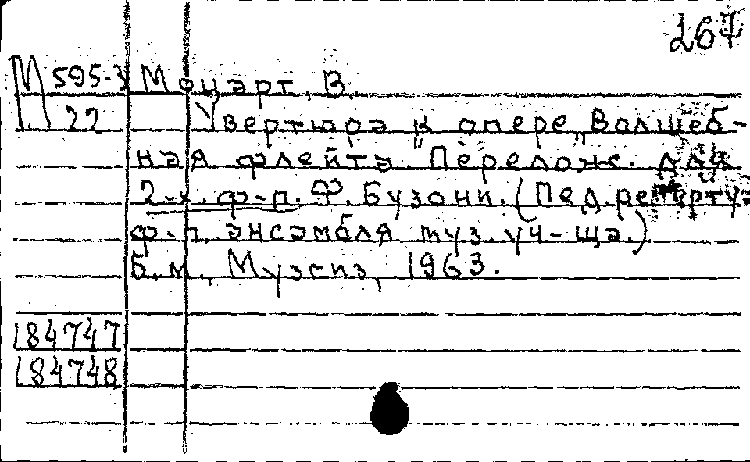 267
М 595-3 Моцарт, В.
22 Увертюра к опере „Волшеб-
ная флейта". Переложе. для
2-х. ф-п. Ф. Бузони. (Пед. реперту-
ф-п. ансамбля муз. уч-ща.)
Б.м., Музгиз, 1963.
184747
184748